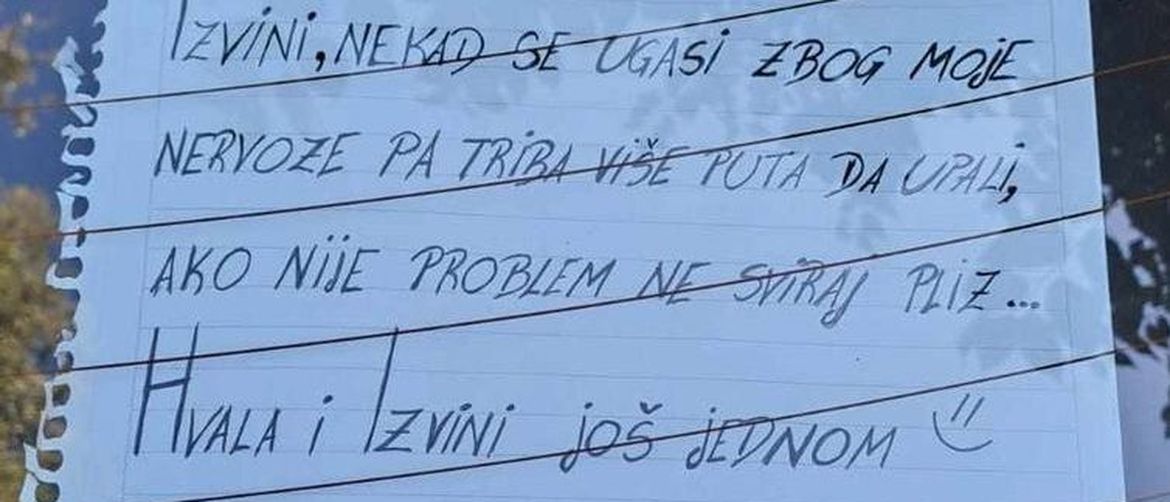 IZVINI, NEKAD SE UGASI ZBOG MOJE
NERVOZE PA TRIBA VIŠE PUTA DA UPALI,
AKO NIJE PROBLEM NE SVIRAJ PLIZ...
HVALA I IZVINI JOŠ JEDNOM